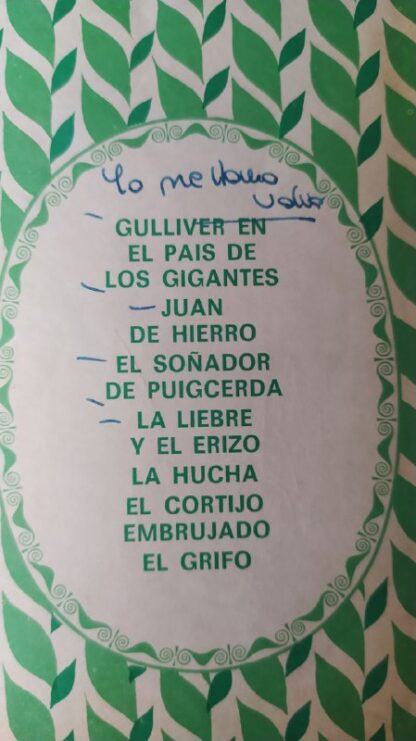 Yo me llamo
GULLIVER EN
EL PAIS DE
LOS GIGANTES
JUAN
DE HIERRO
EL SOÑADOR
DE PUIGCERDA
LA LIEBRE
Y EL ERIZO
LA HUCHA
EL CORTIJO
EMBRUJADO
EL GRIFO